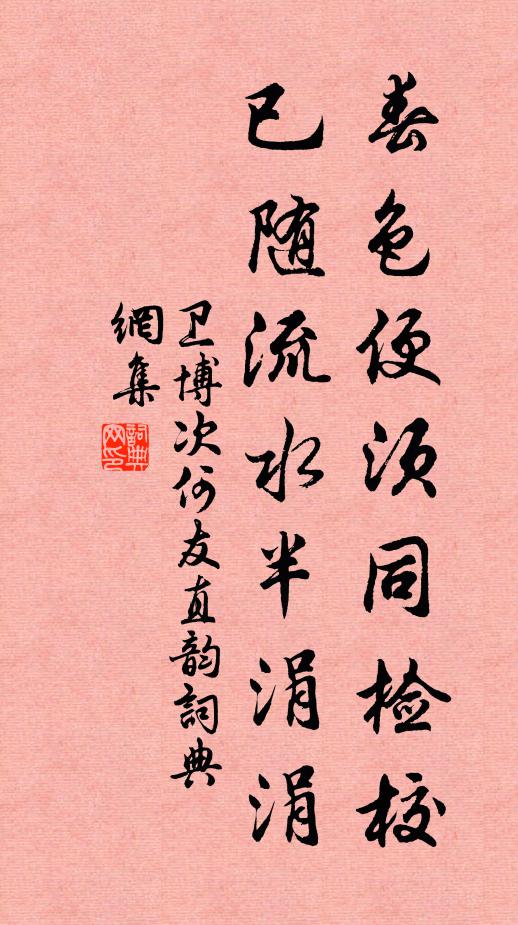 春色便须同检校
已随流水半涓涓
卫博次何友直韵詞典
網集
詞典
网印